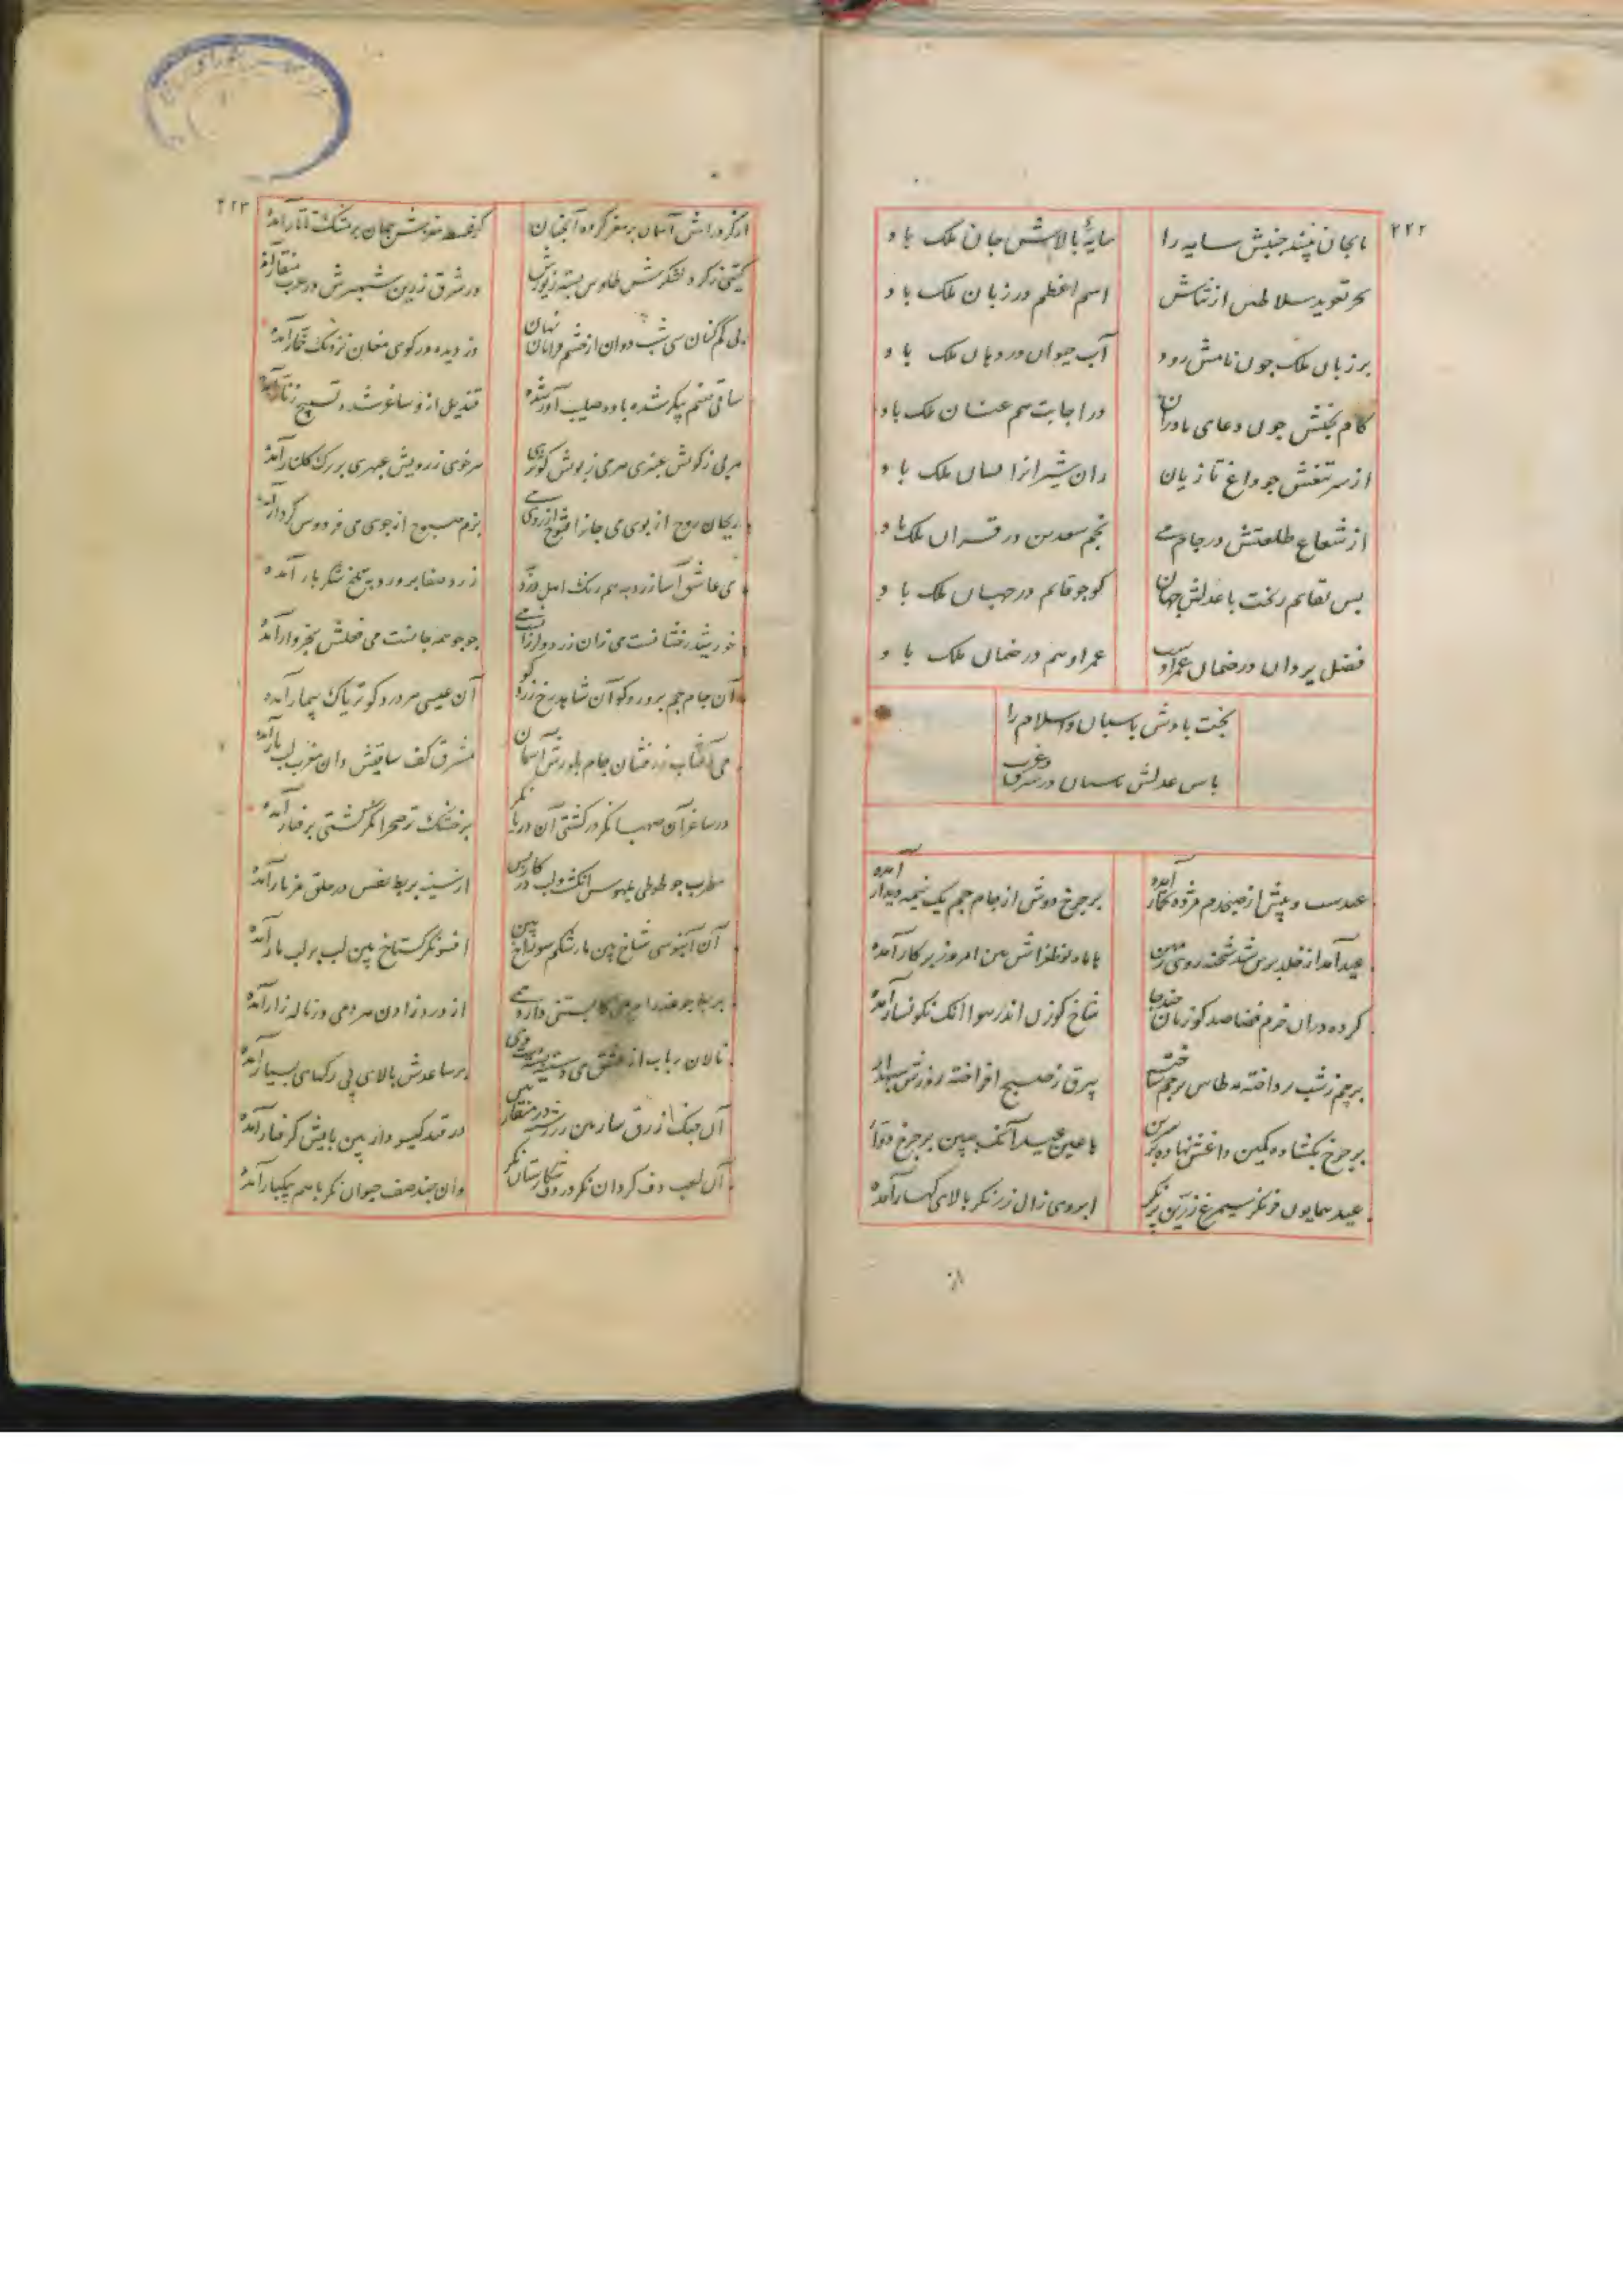 ۲۲۲
تا بجان بیند جنبش سایه را سایهٔ بالاش جان ملک باد
حر تعوید سلاطین از ثناش اسم اعظم در زبان ملک باد
بر زبان ملک چون نامش رود آب حیوان در دهان ملک باد
کام بخشش چون دعای مادران در اجابت هم عنان ملک باد
از سر تیغش چو داغ تازیان ران شیران را نشان ملک باد
از شعاع طلعتش در جام می نجم سعدین در قران ملک باد
بس بقایم ریخت با عدلش جهان کو چو قایم در جهان ملک باد
فضل یزدان در ضمان عمر اوست عمر او هم در ضمان ملک باد
بخت بادش پاسبان و اسلام را
پاس عدلش پاسبان در شرق و غرب
عیدست و پیش از صبحدم مژده بخمار آمده بر چرخ دوش از جام جم یک نیمه دیدار آمده
عید آمد از خلد برین شد شحنه روی زمین با ماه نو طغراش بین امروز بر کار آمده
کرده در آن خرم فضا صید گوزنان چند جا شاخ گوزن اندر هوا اینک نگونسار آمده
پرچم ز شب پرداخته مه طاس پرچم ساخته بیرق ز صبح افراخته روزش سپهدار آمده
بر چرخ بگشاده کمین داغش نهاده بر سرین با عین عید آنک ببین بر چرخ دوار آمده
عید همایون فر نگر سیمرغ زرین پر نگر ابروی زال زر نگر بالای کهسار آمده
از
۲۲۳
از گرد راهش آسمان تر مغز گردد آنچنان کز عطسه مغزش جهان پر مشک تاتار آمده
گیتی ز گرد لشکرش طاوس بسته زیورش در شرق زرین شهپرش در غرب منقار آمده
پی گم کنان سی شب دوان از چشم قرایان نهان دزدیده در کوی مغان نزدیک خمار آمده
ساقی صنم پیکر شده باده صلیب آور شده قندیل ازو ساغر شده تسبیح زنار آمده
می بر ز کوش عنبری می ز بویش کوثری خوی ز رویش عبهری بر برگ گلنار آمده
ریحان روح از بوی می جان را فتوح از روی می بزم صبوح از جوی می فردوس کردار آمده
می عاشق آسا زرد به همرنگ اهل درد به زرد صفا پرورد به تلخ شکربار آمده
خورشید رخشانست می زان زرد و لرزانست می جوجو همه جانست می فعلش بخروار آمده
آن جام جم پرورد کو آن شاهد رخ زرد کو آن عیسی هر درد کو تریاک بیمار آمده
می آفتاب زرفشان جام بلورش آسمان مشرق کف ساقیش دان مغرب لب یار آمده
در ساغر آن صهبا نگر در کشتی آن دریا نگر بر خشک تر صحرا نگر کشتی برفتار آمده
مطرب چو طوطی بلهوس انگشت و لب در کار و بس از سینه بربط نفس در حلق مزمار آمده
آن آبنوسی شاخ بین مار شکم سوراخ بین افسونگر گستاخ بین لب بر لب مار آمده
بربط چو عذرا مریمی کابستنی دارد همی از درد زادن هر دمی در ناله زار آمده
نالان رباب از عشق می دستینه بسته دست وی بر ساعدش بالای پی رگهای بسیار آمده
آن چنگ ازرق سار بین زر رشته در منقار بین در قید گیسودار بین پایش گرفتار آمده
آن لعب دف گردان نگر در دف شکارستان نگر وان چند صف حیوان نگر با هم بپیکار آمده